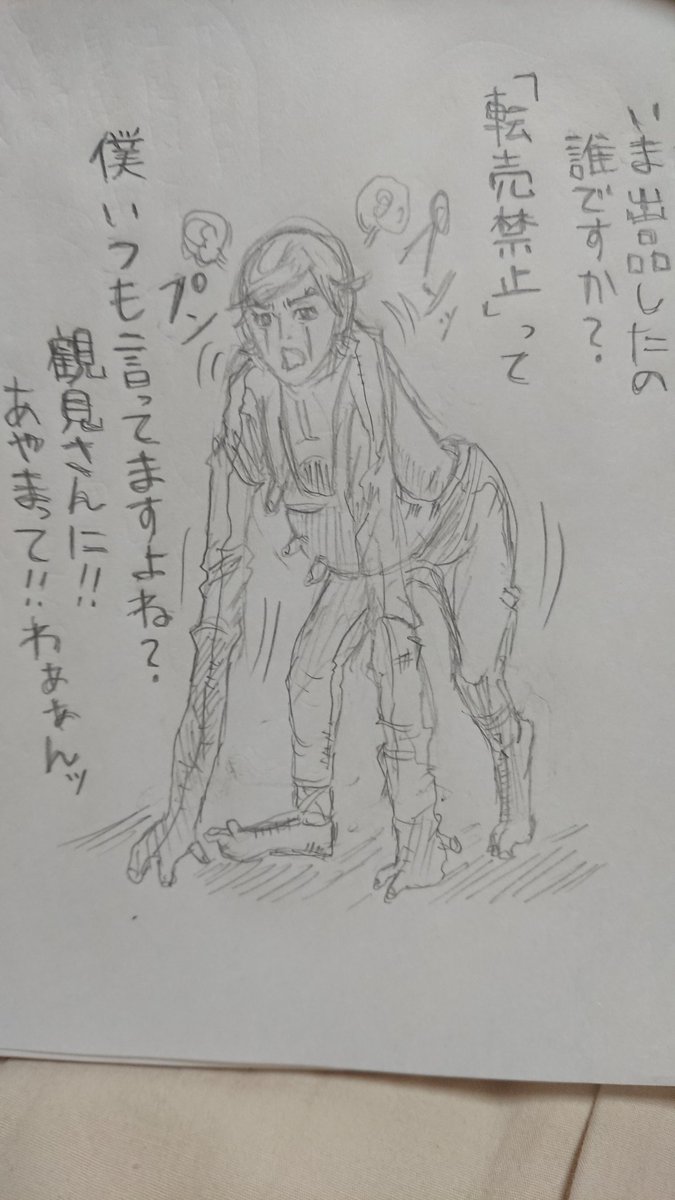 いま出品したの
誰ですか?
「転売禁止」って
僕いつも言ってますよね?
観見さんに!!
あやまって!!わぁぁんッ
プンッ
プン